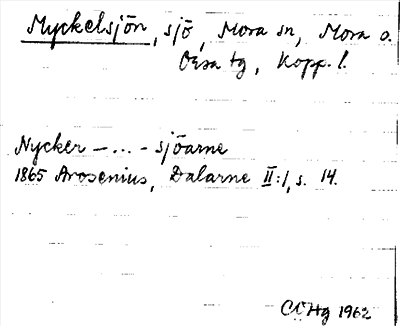 Myckelsjön, sjö, Mora sn, Mora o.
Orsa tg, Kopp. l.
Nycker – ... - sjöarne
1865 Arosenius, Dalarne II:1, s. 14.
CÖHg 1962